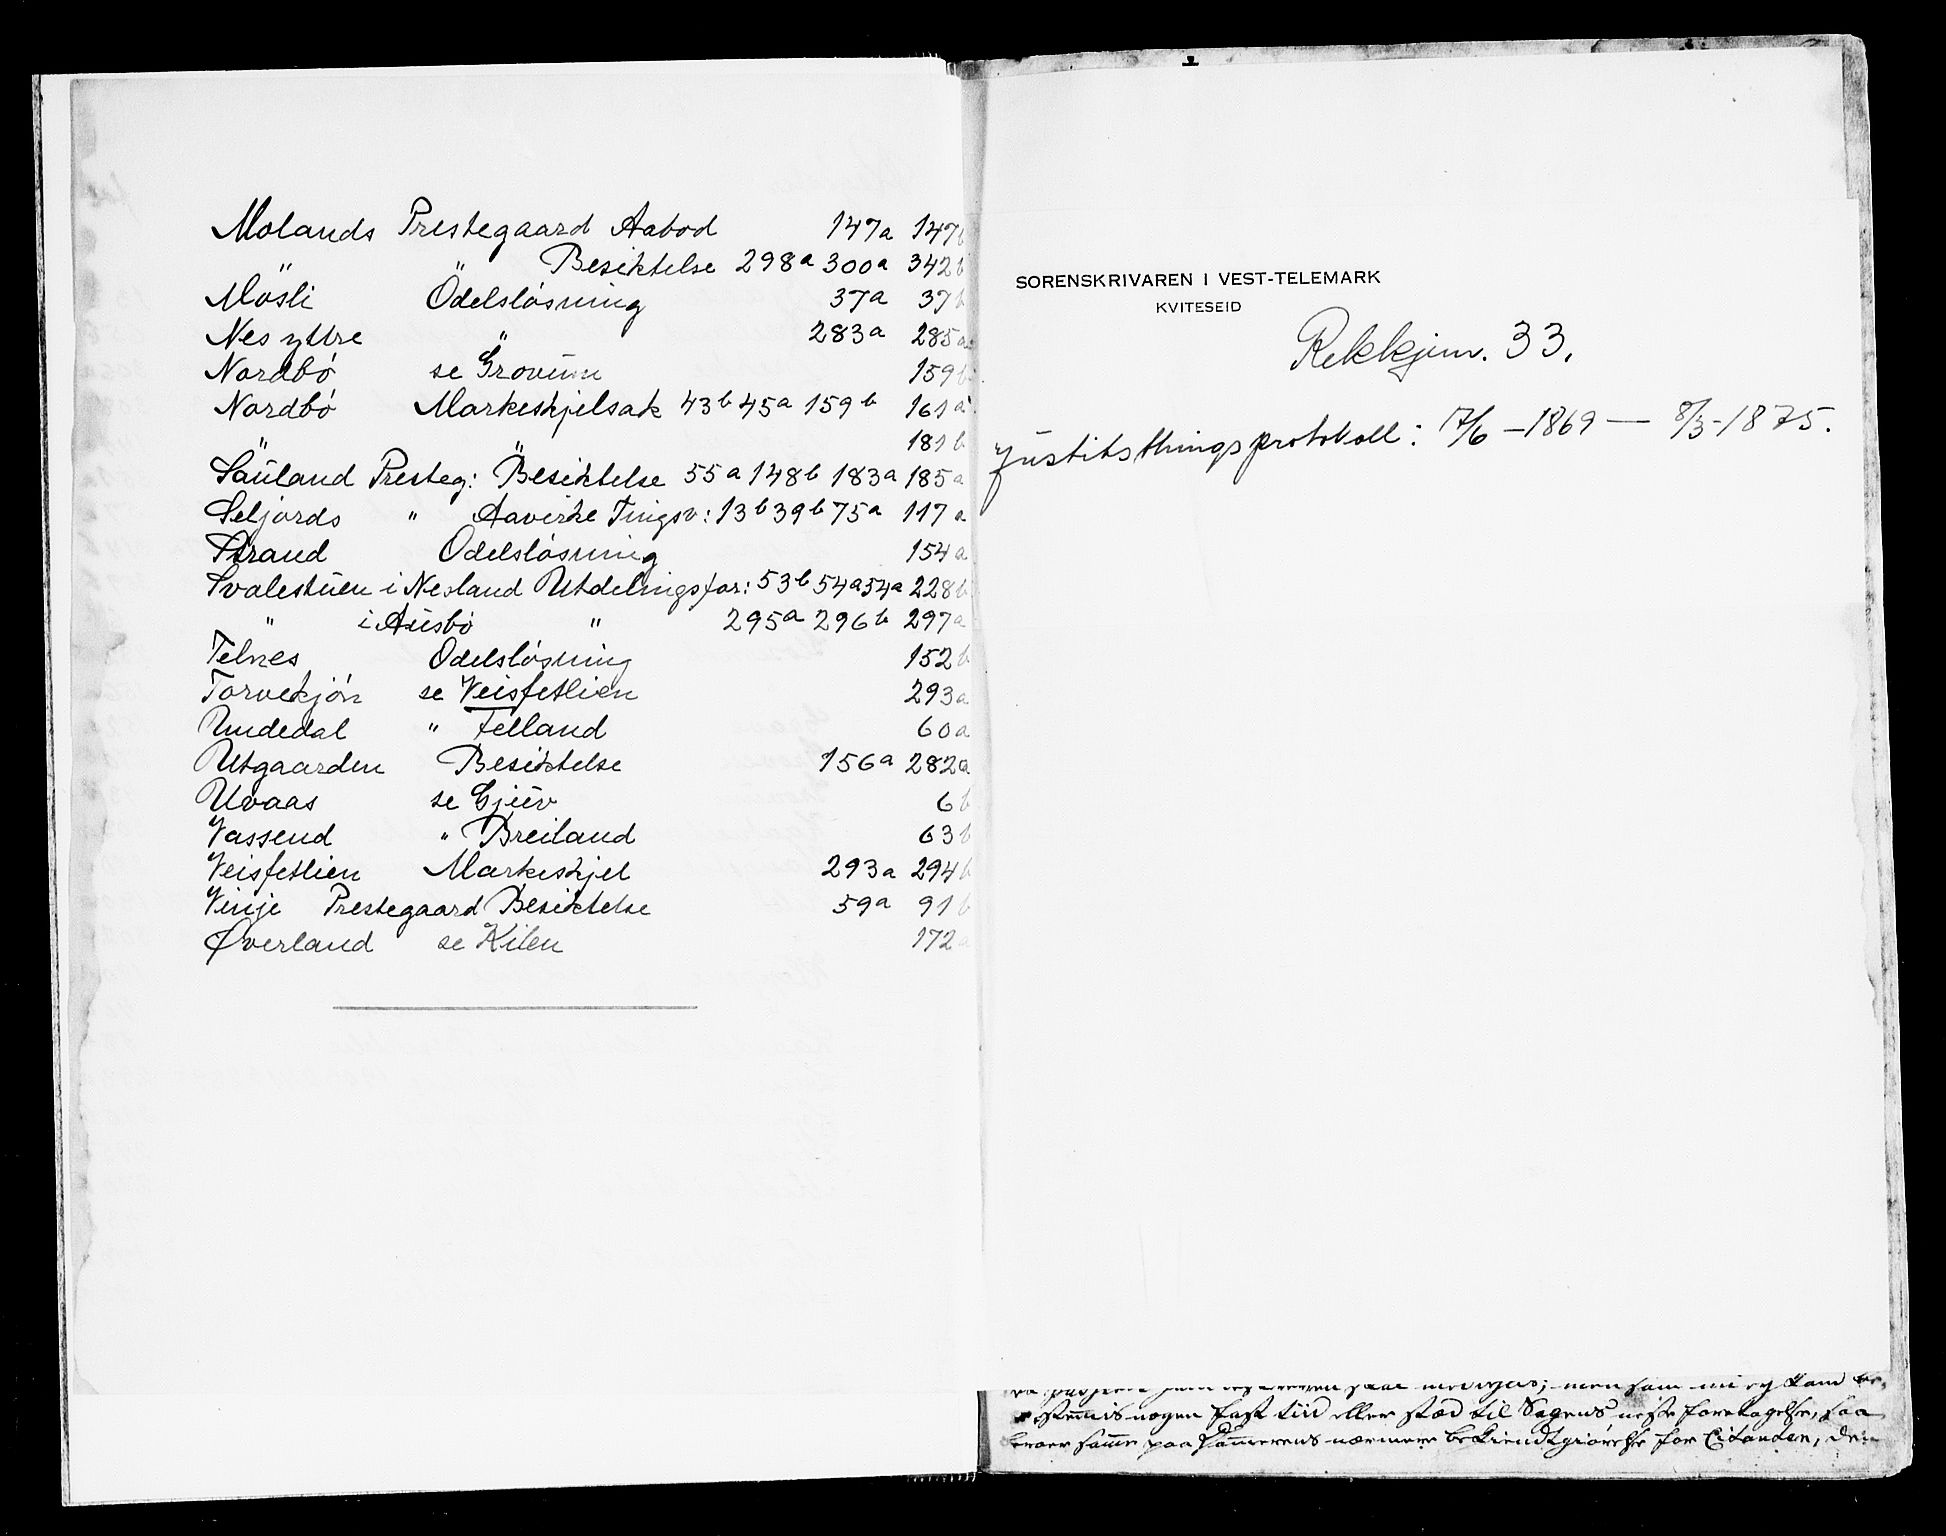 Molands Prestegaard Aabod 147a 147b
" " Besiktelse 298a 300a 342b
Mösli Odelslösning 37a 37b
Nes yttre " 283a 285a
Nordbö se Grovum 159b
Nordbö Markeskjelsak 43b 45a 159b 161a
" " 181b
Sauland Presteg: Besiktelse 55a 148b 183a 185a
Seljords " Aavirke Tingsv: 13b 39b 75a 117a
Strand Odelslösning 154a
Svalestuen i Nesland Utdelingsfor: 53b 54a 54a 228b
" i Ausbö " 295a 296b 297a
Telnes Odelslösning 152b
Torvekjön se Veisfetlien 293a
Undedal " Felland 60a
Utgaarden Besiktelse 156a 282a
Uvaas se Gjuv 6b
Vassend " Breiland 63b
Veisfetlien Markeskjel 293a 294b
Vinje Prestegaard Besiktelse 59a 91b
Øverland se Kilen 172a
SORENSKRIVAREN I VEST-TELEMARK
KVITESEID
Rekkjem. 33.
Justitsthingsprotokoll: 17/6 – 1869 — 8/3-1875.
men som nu ey kand
bestemmis nogen fast tiid eller stæd til Sagens neste foretagelse, saa
beroer samme paa nærmere bekiendtgiørelse for Citanten, den